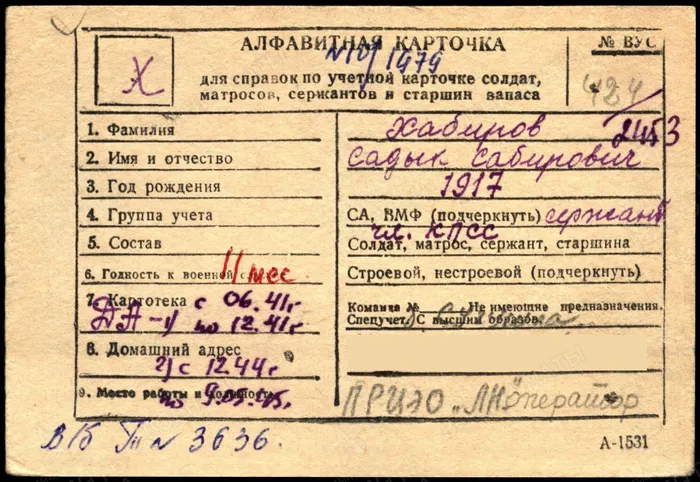 АЛФАВИТНАЯ КАРТОЧКА
№ ВУС
Х
№10/1479
для справок по учетной карточке солдат,
матросов, сержантов и старшин запаса
424/
2453
1. Фамилия
Хабиров
2. Имя и отчество
Садык Сабирович
3. Год рождения
1917
4. Группа учета
СА, ВМФ (подчеркнуть) сержант
чл. КПСС
5. Состав
Солдат, матрос, сержант, старшина
6. Годность к военной
11 мес
Строевой, нестроевой (подчеркнуть)
7. Картотека с 06.41г
ДА-1/ по 12.41г
Команда № Не имеющие предназначения.
Спецучет. С высшим образов.
8. Домашний адрес
2) с 12.44г
9. Место работы и должность
по 9.05.45г.
ПРИЭО „ЛЮ" оператор
В/б № 3636.
А-1531